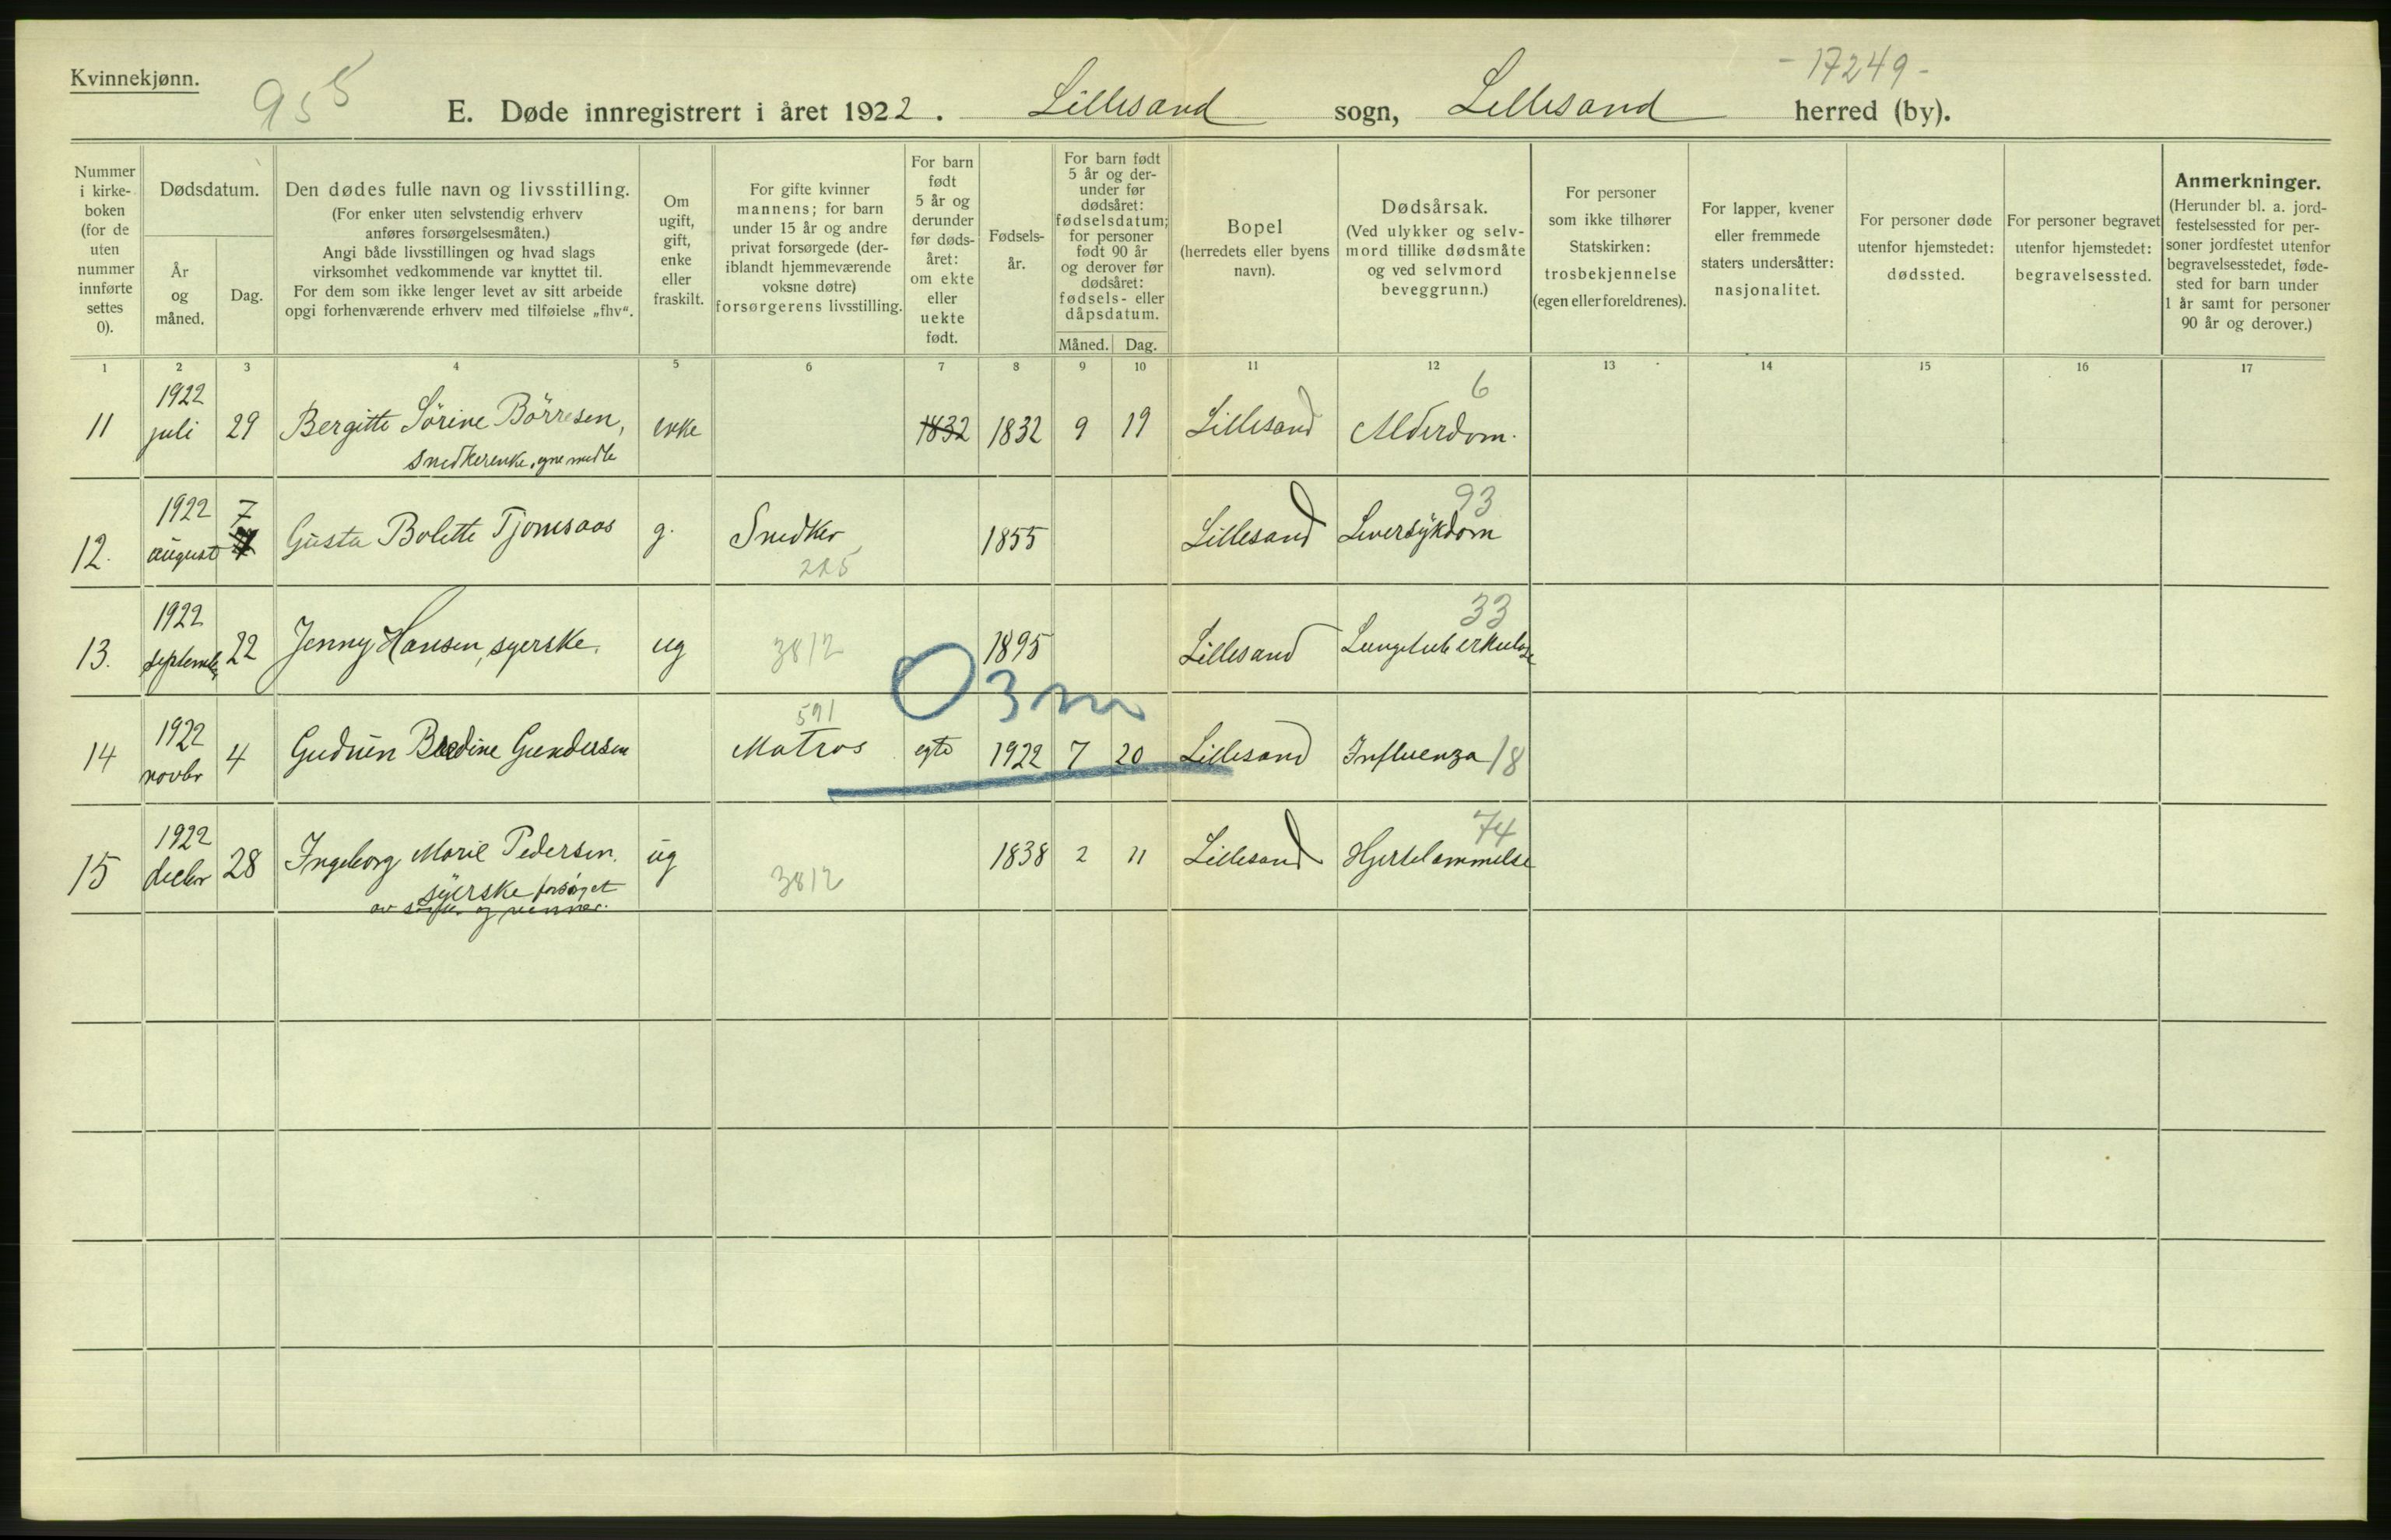 Kvinnekjønn.
955
- 17249 -
E. Døde innregistrert i året 1922. Lillesand sogn, Lillesand herred (by).
Nummer i kirke- boken (for de uten nummer innførte settes 0).
Dødsdatum.
År og måned.
Dag.
Den dødes fulle navn og livsstilling.
(For enker uten selvstendig erhverv
anføres forsørgelsesmåten.)
Angi både livsstillingen og hvad slags
virksomhet vedkommende var knyttet til.
For dem som ikke lenger levet av sitt arbeide
opgi forhenværende erhverv med tilføielse „fhv“.
Om ugift, gift, enke eller fraskilt.
For gifte kvinner
mannens; for barn
under 15 år og andre
privat forsørgede (der-
iblandt hjemmeværende
voksne døtre)
forsørgerens livsstilling.
For barn født 5 år og derunder før døds- året: om ekte eller uekte født.
Fødsels- år.
For barn født
5 år og der-
under før
dødsåret:
fødselsdatum;
for personer
født 90 år
og derover før
dødsåret:
fødsels- eller
dåpsdatum.
Måned. Dag.
Bopel
(herredets eller byens
navn).
Dødsårsak.
(Ved ulykker og selv-
mord tillike dødsmåte
og ved selvmord
beveggrunn.)
For personer
som ikke tilhører
Statskirken:
trosbekjennelse
(egen eller foreldrenes).
For lapper, kvener
eller fremmede
staters undersåtter:
nasjonalitet.
For personer døde
utenfor hjemstedet:
dødssted.
For personer begravet
utenfor hjemstedet:
begravelsessted.
Anmerkninger.
(Herunder bl. a. jord-
festelsessted for per-
soner jordfestet utenfor
begravelsesstedet, føde-
sted for barn under
1 år samt for personer
90 år og derover.)
1 2 3 4 5 6 7 8 9 10 11 12 13 14 15 16 17
1922 6
11 juli 29 Bergitte Sörine Börresen, enke 1832 1832 9 19 Lillesand Alderdom.
snedkerenke, egne midle
1922 7 93
12. august Gusta Bolette Tjomsaas g. Snedker 1855 Lillesand Leversykdom
225
1922 33
13. septembr 22 Jenny Hansen, syerske. ug 3812 1895 Lillesand Lungetuberkulose
0 3 m
591
1922
14 novbr 4 Gudrun Gundersen Matros egte 1922 7 20 Lillesand Influenza 18
1922 74
15 decbr 28 Ingeborg Marie Pedersen. ug 1838 2 11 Lillesand Hjertelammelse
syerske forsörget 3812
av og venner.